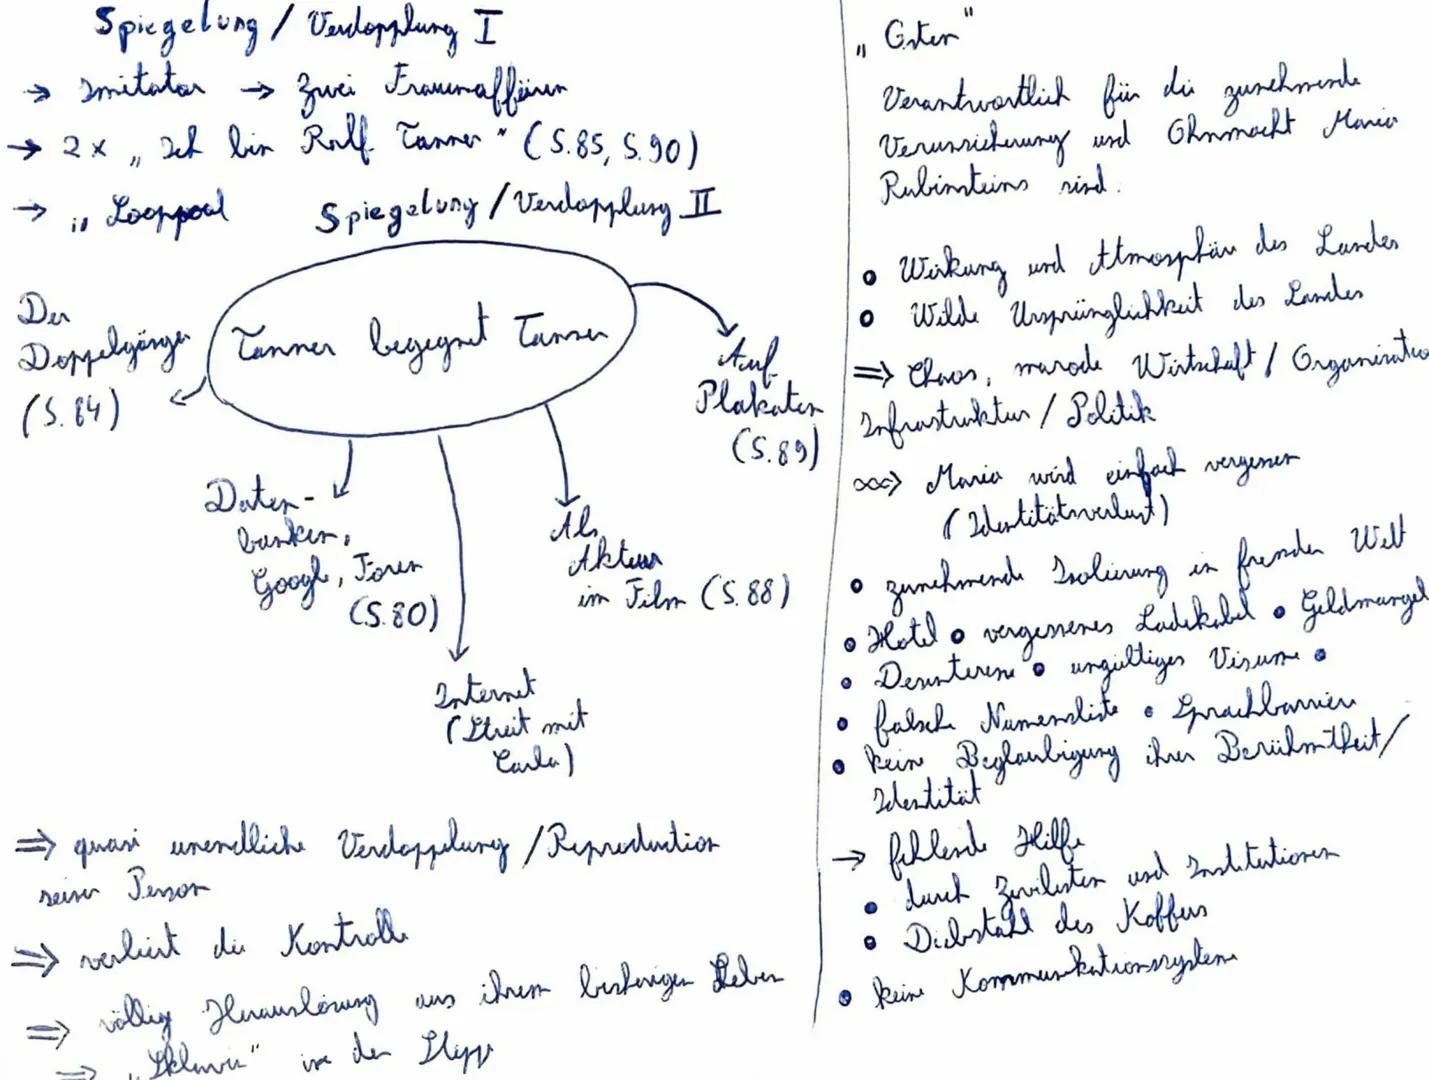 Spiegelung / Verdopplung I
→ Imitator → zwei Frauenaffären
→ 2x „Ich bin Ralf Tanner" (S. 85, S. 90)
→ „Looppool
Spiegelung / Verdopplung II
Tanner begegnet Tanner
Der
Doppelgänger
(S. 84)
Daten-
banken,
Google, Foren
(S. 80)
Internet
(Streit mit
Carla)
Als
Akteur
im Film (S. 88)
Auf
Plakaten
(S. 89)
⇒ quasi unendliche Verdoppelung / Reproduktion
seiner Person
⇒ verliert die Kontrolle
⇒ völlig Herauslösung aus ihrem bisherigen Leben
⇒ „Sklavin" in der Steppe
„Osten"
Verantwortlich für die zunehmende
Verunsicherung und Ohnmacht Maria
Rubinsteins sind.
• Wirkung und Atmosphäre des Landes
• Wilde Ursprünglichkeit des Landes
⇒ Chaos, marode Wirtschaft / Organisation
Infrastruktur / Politik
⇒ Maria wird einfach vergessen
(Identitätsverlust)
• zunehmende Isolierung in fremder Welt
• Hotel • vergessenes Ladekabel • Geldmangel
• Desinteresse • ungültiges Visum •
• falsche Namensliste • Sprachbarriere
• keine Beglaubigung ihrer Berühmtheit /
Identität
→ fehlende Hilfe
• durch Zivilisten und Institutionen
• Diebstahl des Koffers
• keine Kommunikationssysteme